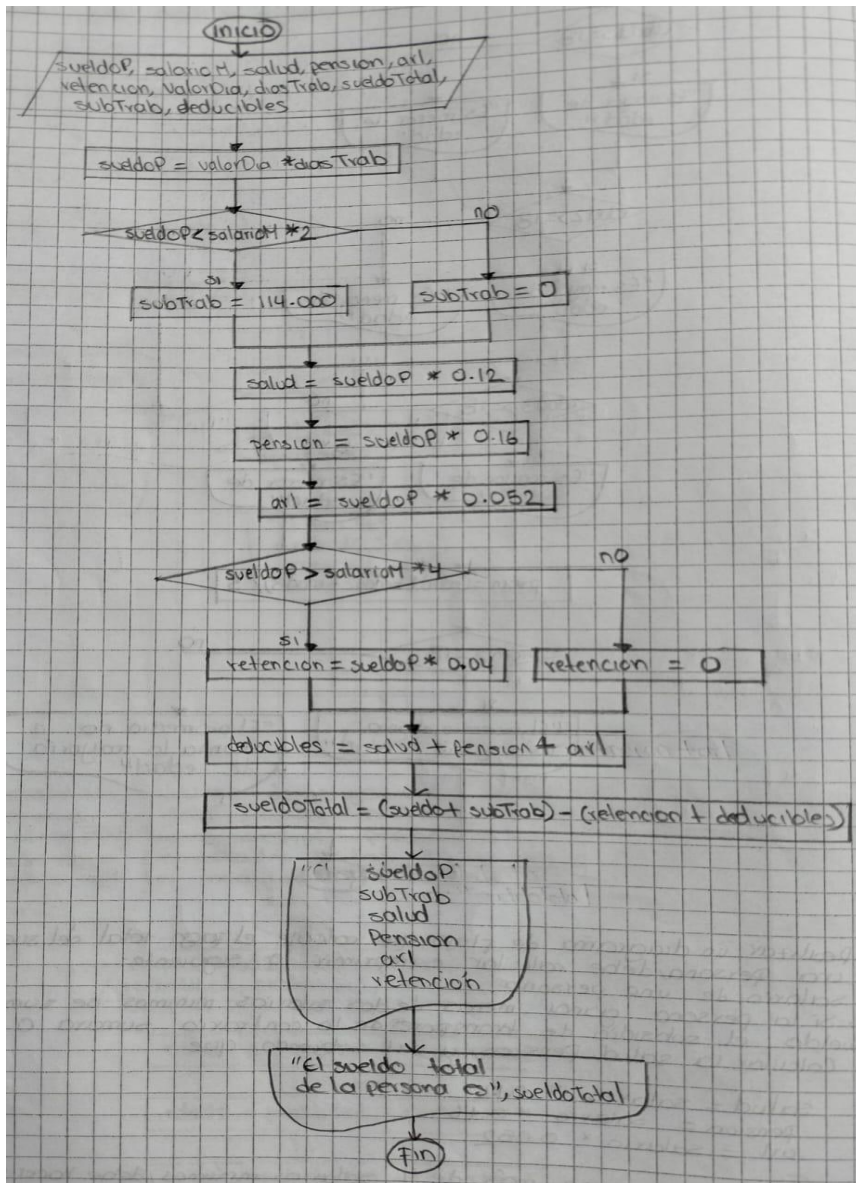 inicio
sueldoP, salarioM, salud, pension, arl,
retencion, ValorDia, diasTrab, sueldoTotal,
subTrab, deducibles
sueldoP = valorDia *diasTrab
sueldoP<salarioM *2
no
si
subTrab = 114.000
subTrab = 0
salud = sueldoP * 0.12
pension = sueldoP * 0.16
arl = sueldoP * 0.052
sueldoP > salarioM *4
no
si
retencion = sueldoP * 0.04
retencion = 0
deducibles = salud + pension + arl
sueldoTotal = (sueldo+ subTrab) - (retencion + deducibles)
sueldoP
subTrab
salud
Pension
arl
retención
"El sueldo total
de la persona es", sueldoTotal
Fin